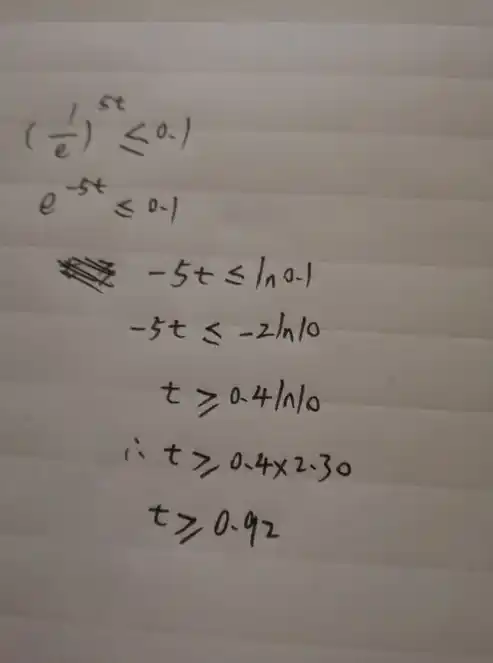 (1/e)^5t ≤ 0.1
e^-5t ≤ 0.1
-5t ≤ ln0.1
-5t ≤ -2ln10
t ≥ 0.4ln10
∴ t ≥ 0.4×2.30
t ≥ 0.92